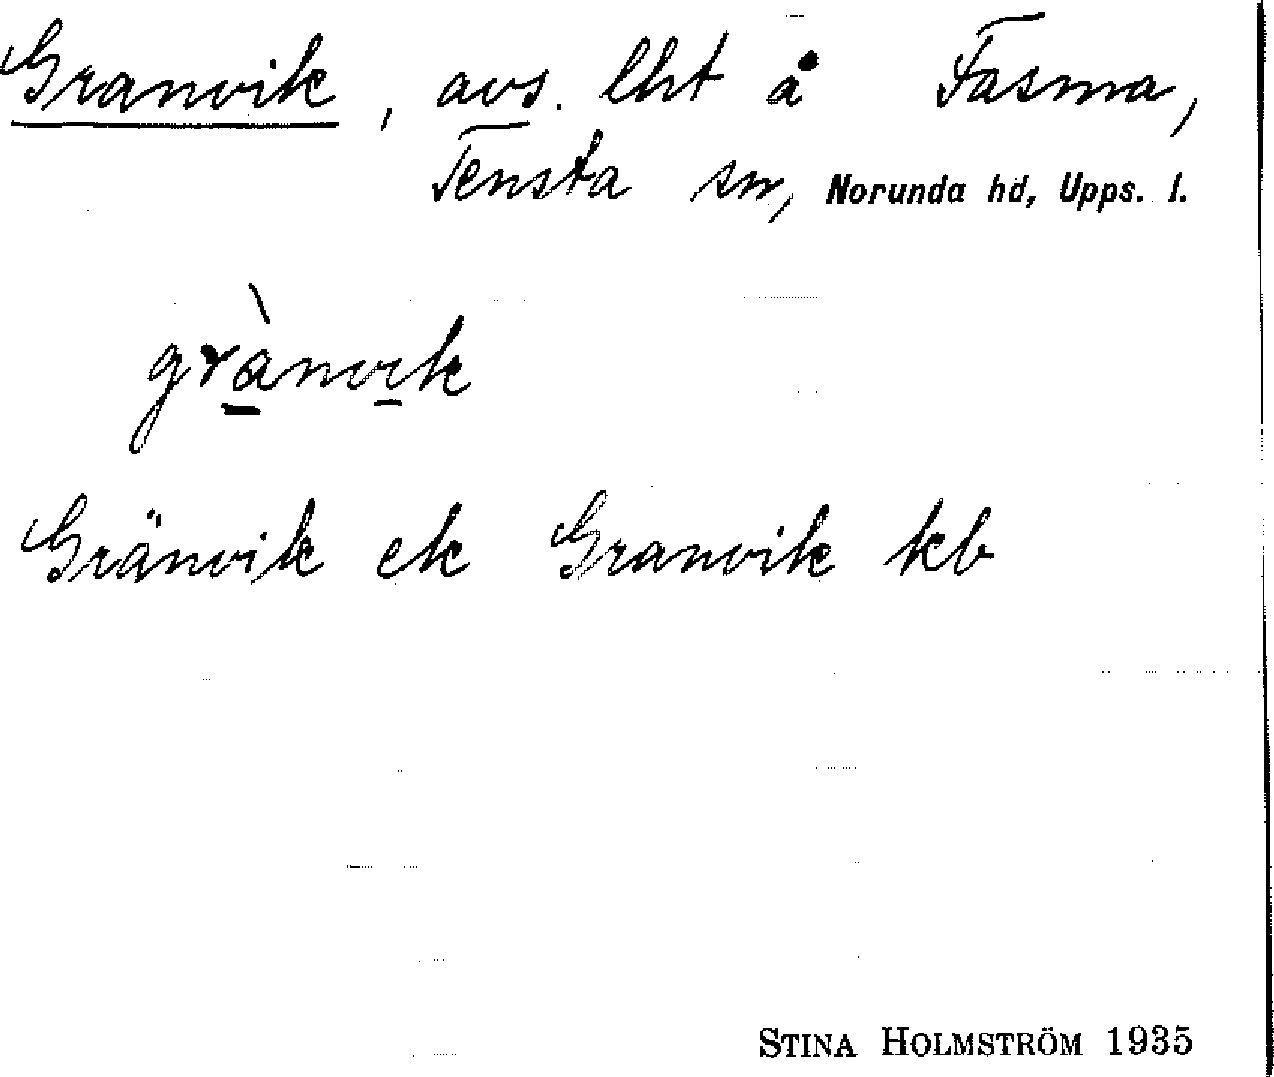 Granvik, avs. lht å Fasma,
Tensta sn, Norunda hd, Upps. l.
grànvik
Gränvik ek Granvik kb
STINA HOLMSTRÖM 1935